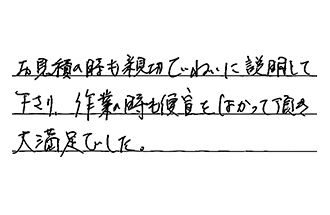 お見積の時も親切ていねいに説明して
下さり、作業の時も便宜をはかって頂き
大満足でした。